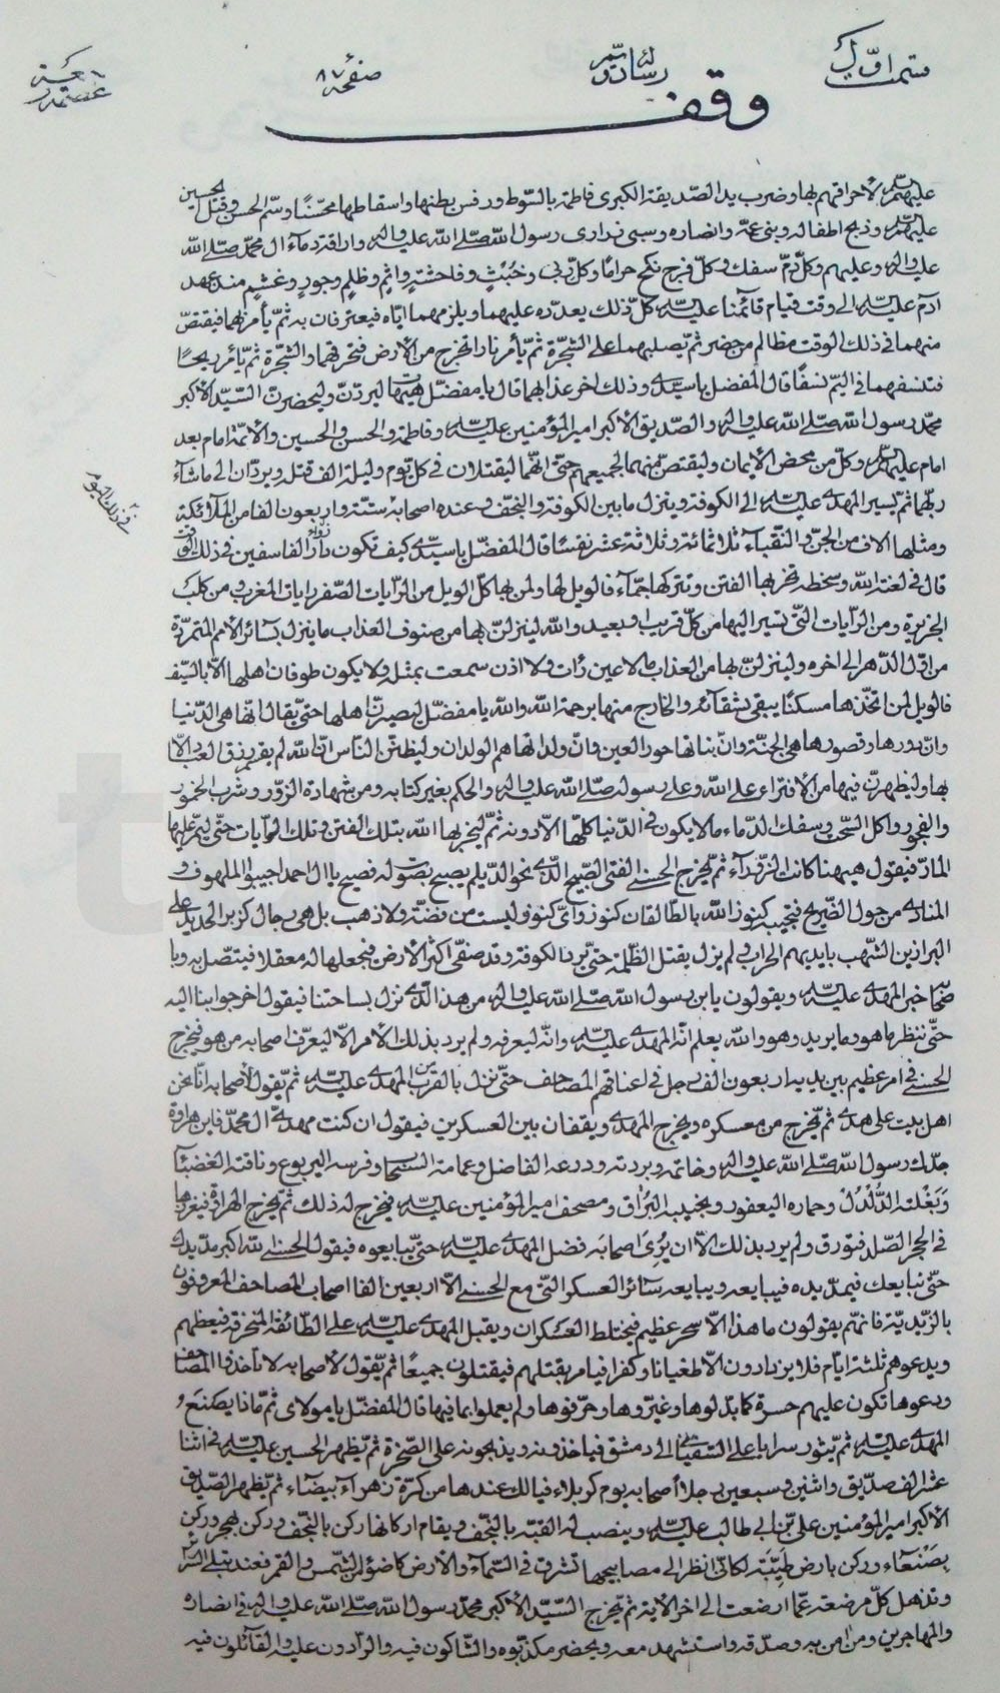 قسمت اوّل
رساله وقف
صفحه ٨٧
وقف
عليهم لاحراقهم بها وضرب يد الصّديقة الكبرى فاطمة بالسّوط ورفس بطنها واسقاطها محسّنًا وسمّ الحسن وقتل الحسين
عليه وذبح اطفاله وبنى عمّه وانصاره وسبى ذرارى رسول الله صلّى الله عليه واله واراقة دماء ال محمّد صلّى الله
عليه واله وعليهم وكلّ دمّ سفك وكلّ فرج نكح حرامًا وكلّ وخبث وفاحشة واثم وظلم وجور وغشم منذ عهد
ادم عليه السّلام الى وقت قيام قائمنا عليه السّلام كلّ ذلك يعدّده عليهما ويلزمهما ايّاه فيعترفان به ثمّ يأمر بهما فيقتصّ
منهما فى ذلك الوقت مظالم من حضر ثمّ يصلبهما على الشّجرة ثمّ يأمر نارًا تخرج من الارض فتحرقهما والشّجرة ثمّ يأمر ريحًا
فتنسفهما فى اليمّ نسفًا قال المفضل ياسيّدى وذلك اخر عذابهما قال يا مفضّل هيهات ليردّنّ وليحضرنّ السّيّد الاكبر
محمّد رسول الله صلّى الله عليه واله والصّديق الاكبر امير المؤمنين عليه السّلام وفاطمة والحسن والحسين والائمّة امام بعد
امام عليهم وكلّ من محض الايمان وليقتصّ منهما لجميعهم حتّى انّهما ليقتلان فى كلّ يوم وليلة الف قتلة ويردّان الى ما شاء
ربّهما ثمّ يسير المهدى عليه السّلام الى الكوفة وينزل ما بين الكوفة والنجف وعنده اصحابه ستّة واربعون الفا من الملائكة
ومثلها الاف من الجنّ والنّقباء ثلاثمائة وثلاثة عشر نفسًا قال المفضّل ياسيّدى كيف تكون دار الفاسقين فى ذلك الوقت
قال فى لعنة الله وسخطه تخربها الفتن وتتركها جمّاء فالويل لها ولمن بها كلّ الويل من الرّايات الصّفر ورايات المغرب ومن كلب
الجزيرة ومن الرّايات التّى تسير اليها من كلّ قريب او بعيد والله لينزلنّ بها من صنوف العذاب ما ينزل بسائر الامم المتمرّدة
من اوّل الدّهر الى اخره ولينزلنّ بها من العذاب ما لا عين رأت ولا اذن سمعت بمثله ولا يكون طوفان اهلها الّا بالسّيف
فالويل لمن اتّخذها مسكنًا يبقى بشقائه والخارج منها برحمة الله والله يا مفضّل ليصيرنّ اهلها حتّى يقال انّها هى الدّنيا
وانّ دورها وقصورها هى الجنّة وانّ بناتها حور العين وانّ ولدانها هم الولدان وليظنّنّ النّاس انّ الله لم يقسم رزق العباد الّا
بها وليظهرنّ فيها من الافتراء على الله وعلى رسوله صلّى الله عليه واله والحكم بغير كتابه ومن شهادة الزّور وشرب الخمور
والفجور واكل السّحت وسفك الدّماء ما لا يكون فى الدّنيا كلّها الّا دونه ثمّ ليخربها الله بتلك الفتن وتلك الرّايات حتّى ليمرّ عليها
المارّ فيقول هيهنا كانت الزّوراء ثمّ يخرج الحسنى الفتى الصّبيح الّذى نحو الدّيلم يصيح بصوت له فصيح يا ال احمد اجيبوا الملهوف و
المنادى من حول الضّريح فتجيبه كنوز الله بالطّالقان كنوز وأىّ كنوز وليست من فضّة ولا ذهب بل هى رجال كزبر الحديد على
البراذين الشّهب بايديهم الحراب ولم يزل يقتل الظّلمة حتّى يرد الكوفة وقد صفى اكثر الارض فيجعلها له معقلا فيتّصل به وبا
صحابه خبر المهدى عليه السّلام ويقولون يابن رسول الله صلّى الله عليه واله من هذا الّذى نزل بساحتنا فيقول اخرجوا بنا اليه
حتّى ننظر ما هو وما يريد وهو والله يعلم انّه المهدى عليه السّلام وانّه ليعرفه ولم يرد بذلك الامر الّا ليعرّف اصحابه من هو فيخرج
الحسنى فى امر عظيم بين يديه اربعون الف رجل فى اعناقهم المصاحف حتّى نزل بالقرب من المهدى عليه السّلام ثمّ يقول لاصحابه انّا نحن
اهل بيت على هدى ثمّ يخرج من معسكره ويخرج المهدى ويقفان بين العسكرين فيقول ان كنت مهدىّ ال محمّد فاين هراوة
جدّك رسول الله صلّى الله عليه واله وخاتمه وبردته ودرعه الفاضل وعمامته السّحاب وفرسه اليربوع وناقته الغضباء
وبغلته الدّلدل وحماره اليعفور ونجيبه البراق ومصحف امير المؤمنين عليه السّلام فيخرج له ذلك ثمّ يخرج الهراوة فيغرزها
فى الحجر الصّلد فتورق ولم يرد بذلك الّا ان يرى اصحابه فضل المهدى عليه السّلام حتّى يبايعوه فيقول الحسنى الله اكبر مدّ يدك
حتّى نبايعك فيمدّ يده فيبايعه ويبايعه سائر العسكر التّى مع الحسنى الّا اربعين الفا اصحاب المصاحف المعروفون
بالزّيديّة فانّهم يقولون ما هذا الّا سحر عظيم فيختلط العسكران ويقبل المهدى عليه السّلام على الطّائفة المنحرفة فيعظهم
ويدعوهم ثلثة ايّام فلا يزدادون الّا طغيانا وكفرا فيامر بقتلهم فيقتلون جميعًا ثمّ يقول لاصحابه لا تأخذوا المصاحف
ودعوها تكون عليهم حسرة كما بدّلوها وغيّروها وحرّفوها ولم يعملوا بما فيها قال المفضّل يا مولاى ثمّ ماذا يصنع
المهدى عليه السّلام ثمّ يثور سرايا على السّفيانى الى دمشق فيأخذونه ويذبحونه على الصّخرة ثمّ يظهر الحسين عليه السّلام فى اثنا
عشر الف صدّيق واثنين وسبعين رجلا اصحابه يوم كربلاء فيا لك عندها من كرّة زهراء بيضاء ثمّ يظهر الصّدّيق
الاكبر امير المؤمنين علىّ بن ابى طالب عليه السّلام وينصب له القبّة بالنّجف ويقام اركانها ركن بالنّجف وركن بهجر وركن
بصنعاء وركن بارض طيبة لكأنّى انظر الى مصابيحها تشرق فى السّماء والارض كاضوء من الشّمس والقمر فعندها تبلى السّرائر
وتذهل كلّ مرضعة عمّا ارضعت الى اخر الاية ثمّ يخرج السّيّد الاكبر محمّد رسول الله صلّى الله عليه واله فى انصاره
والمهاجرين ومن امن به وصدّقه واستشهد معه ويحضر مكذّبوه والشّاكون فيه والرّادّون عليه والقائلون فيه